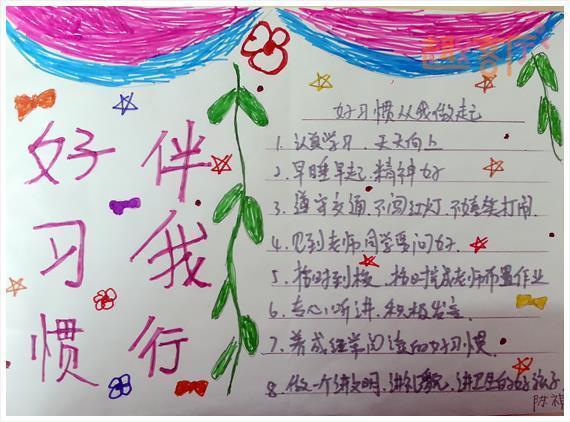 好习惯
伴我行
好习惯从我做起
1. 认真学习、天天向上
2. 早睡早起、精神好
3. 遵守交通、不闯红灯、不追逐打闹.
4. 见到老师同学要问好.
5. 按时到校、按时完成老师布置作业
6. 专心听讲、积极发言.
7. 养成经常阅读的好习惯.
8. 做一个讲文明、讲礼貌、讲卫生的好孩子
陈